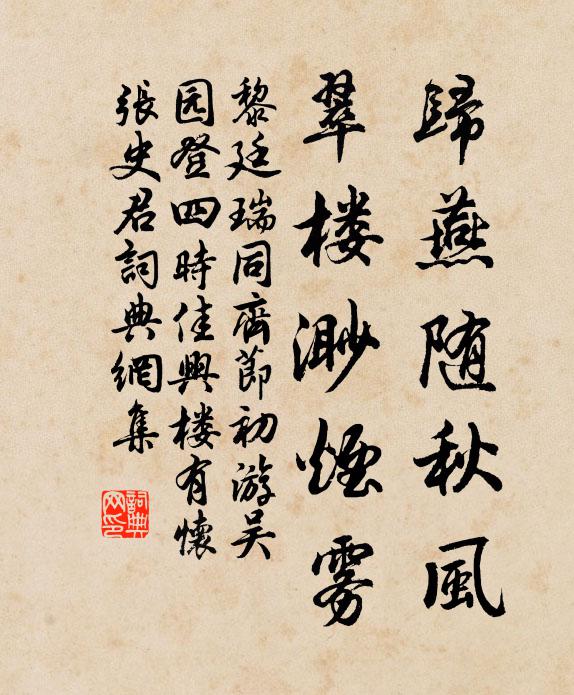 歸燕随秋風
翠楼渺煙雾
黎廷瑞同齊節初游吴
园登四時佳興楼有懷
張史君詞典網集
詞典网印